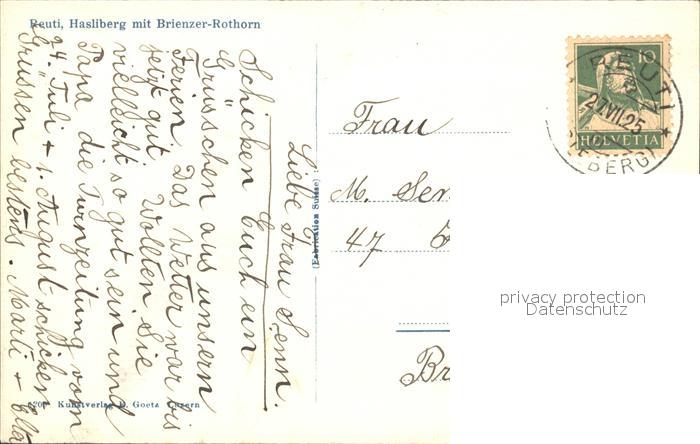 Reuti, Hasliberg mit Brienzer-Rothorn
Liebe Frau Senn.
Schicken Euch ein
Grüsschen aus unsern
Ferien. Das Wetter war bis
jetzt gut. Wollten Sie
vielleicht so gut sein und
Papa die Turnzeitung vom
24. Juli + 1. August schicken
Grüssen bestens. Marti + Elsa
(Fabrication Suisse)
Frau
M. Sen
47
Br
REUTI
27.VII.25
(HASLEBERG)
10
HELVETIA
privacy protection
Datenschutz
Kunstverlag E. Goetz Luzern